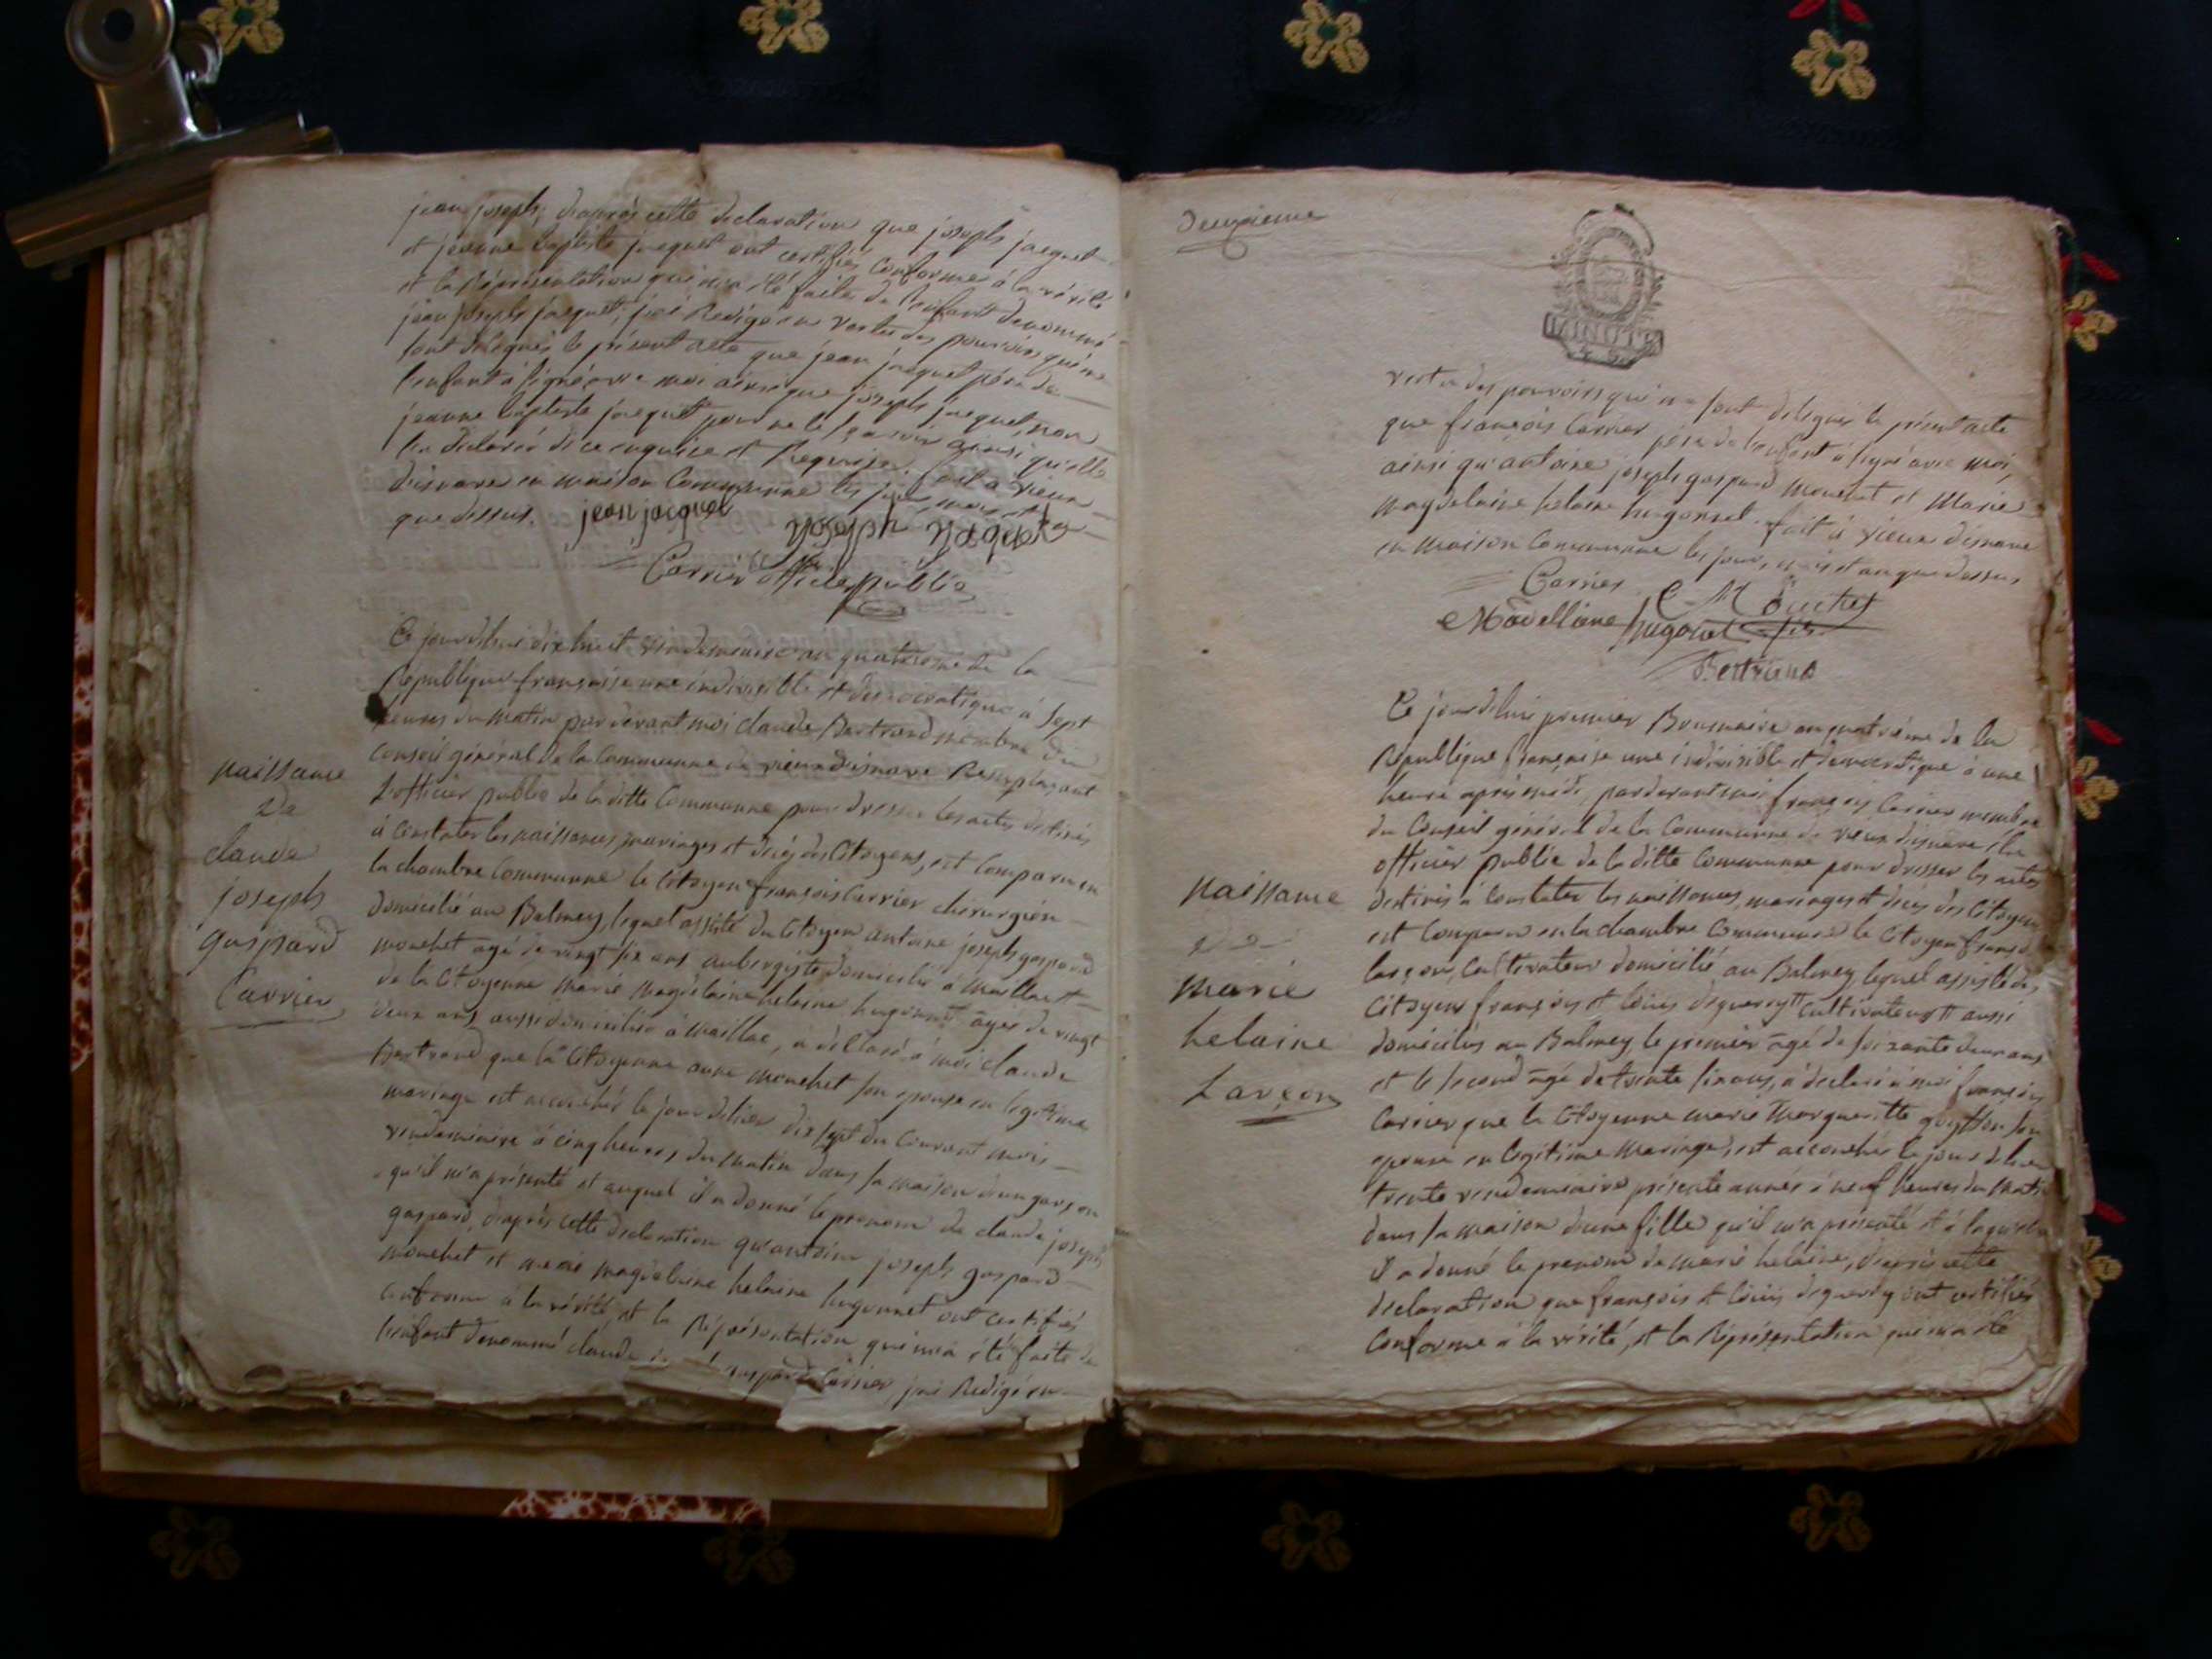 jean joseph, d'après cette declaration que joseph jacquet
et jeanne baptiste jacquet ont certifiés conforme à la vérité
et la représentation qui m'a été faite de l'enfant denommé
jean joseph jacquet, j'ai Redigé en vertu des pouvoirs qui me
sont délégués le présent acte que jean jacquet père de
l'enfant à signé avec moi ainsi que joseph jacquet, non
jeanne baptiste jacquet pour ne le sçavoir ainsi qu'elle
l'a déclaré de ce enquise et Requise. fait à vieux
disnave en maison Commune les jour, mois et an
que dessus. jean jacquet
yoseph yaquet
Carrier officier public
Ce jourdhui dix huit vindemiaire an quatrieme de la
République française une indivisible et democratique à sept
heures du matin par devant moi claude Bertrand membre du
Conseil général de la Commune de vieux disnave Remplaçant
L'officier public de la ditte Commune pour dresser les actes destinés
à Constater les naissances, mariages et décés des Citoyens, est Comparu en
la chambre Commune le Citoyen françois Carrier chirurgien
domicilié au Balmey, lequel assisté du Citoyen antoine joseph gaspard
mouchet agé de vingt six ans aubergiste domicilié à maillat et
de la Citoyenne marie magdelaine helaine hugonnet agée de vingt
deux ans aussi domiciliée à maillac, a déclaré à moi claude
Bertrand que la Citoyenne anne mouchet son epouse en legitime
mariage est accouchée le jour dhier dix sept du Courant mois
vendeminaire à cinq heures du matin dans sa maison d'un garçon
qu'il m'a présenté et auquel il a donné le prenom de claude joseph
gaspard, d'après cette declaration qu'antoine joseph gaspard
mouchet et marie magdelaine helaine hugonnet ont certifiés
conforme à la vérité, et la Représentation qui m'a été faite de
l'enfant denommé claude gaspard Carrier j'ai Redigé en
naissance
de
claude
joseph
gaspard
Carrier
Deuxieme
MINUTE
vertu des pouvoirs qui me sont délégués le présent acte
que françois Carrier père de l'enfant à signé avec moi,
ainsi qu'antoine joseph gaspard mouchet et Marie
magdelaine helaine hugonnet. fait à vieux disnave
en maison Commune les jour, mois et an que dessus
Carrier C M Ouchet
Madellaine hugonet fils
Bertrand
Ce jourdhui premier Brumaire an quatrieme de la
République française une indivisible et democratique à une
heure après midi, par devant moi françois Carrier membre
du Conseil général de la Commune de vieux disnave, élu
officier public de la ditte Commune pour dresser les actes
destinés à Constater les naissances, mariages et décés des Citoyens
est Comparu en la chambre Commune le Citoyen françois
Larçon, Cultivateur domicilié au Balmey, lequel assisté des
Citoyens françois et Louis deguerry cultivateurs aussi
domiciliés au Balmey le premier agé de soixante deux ans
et le second agé de trente six ans, a declaré à moi françois
Carrier que la Citoyenne marie Marguerite goytton son
epouse en legitime mariage, est accouchée le jour dhier
trente vendemiaire présente année à neuf heures du Matin
dans sa maison d'une fille qu'il m'a présenté et à laquelle
il a donné le prenom de marie helaine, d'après cette
declaration que françois et Louis deguerry ont certifiés
Conforme à la vérité, et la Représentation qui m'a été
naissance
de
marie
helaine
Larçon